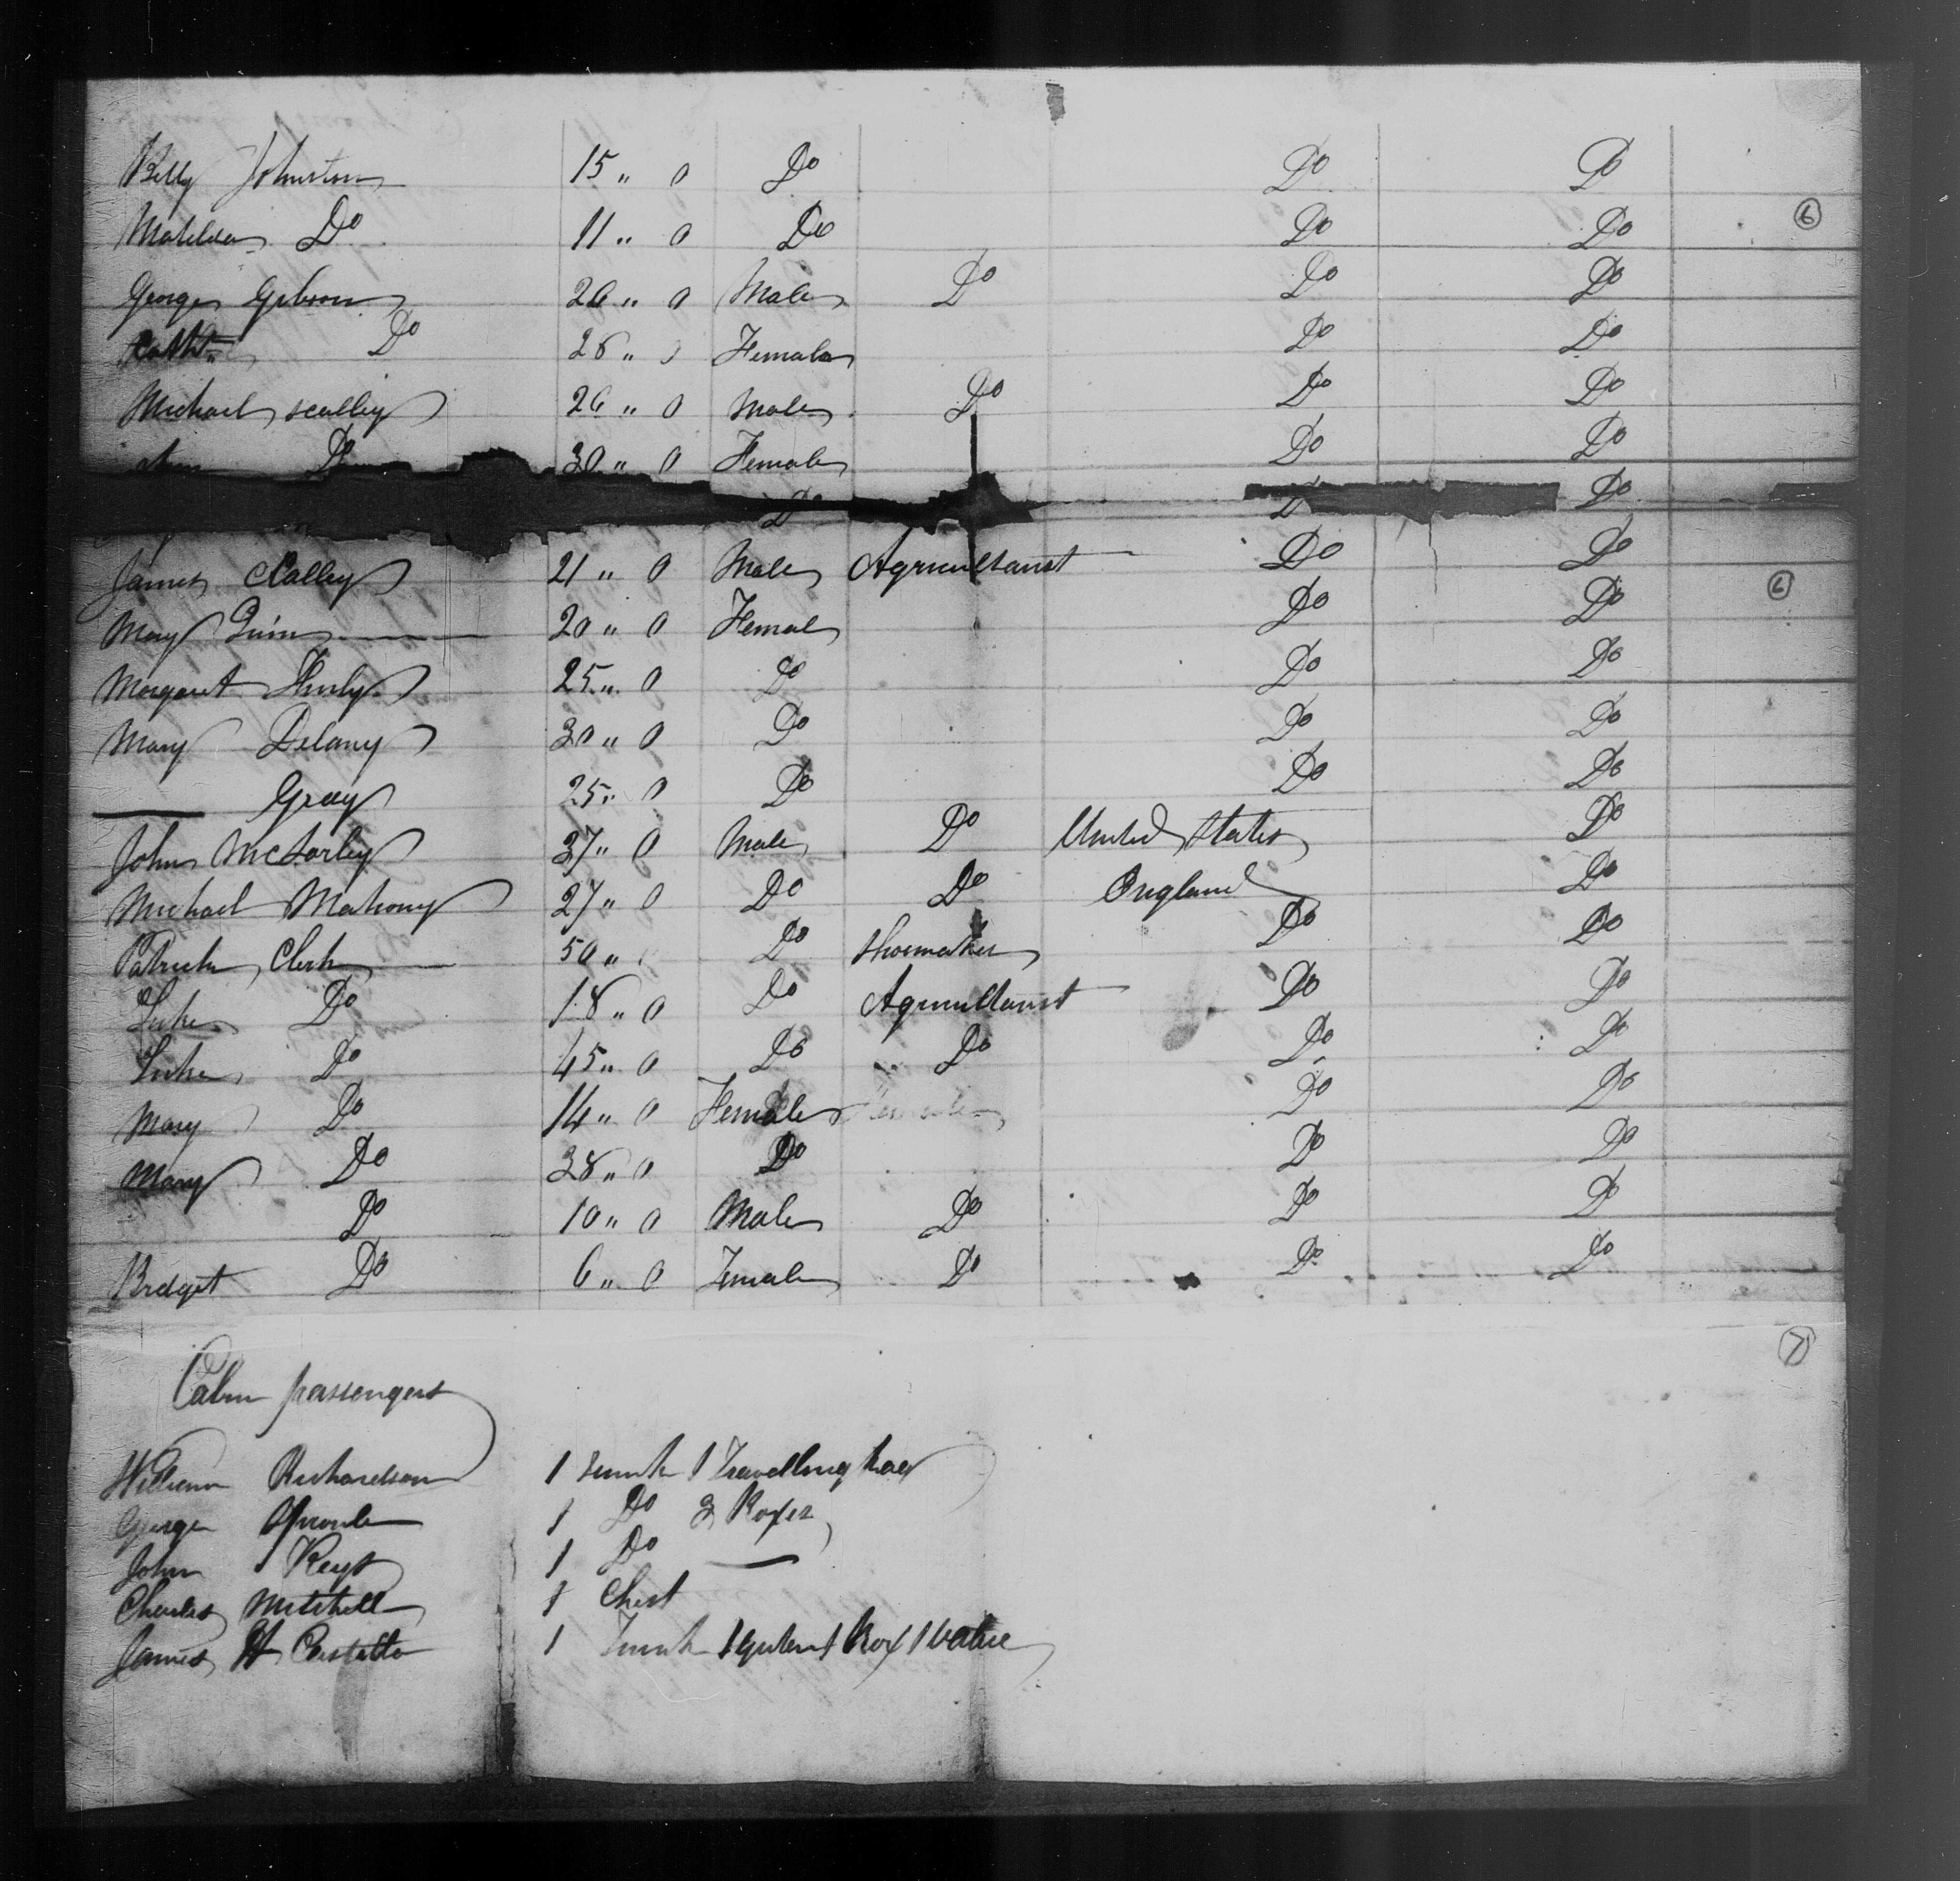 Billy Johnston 15 " 0 Do Do Do
Matilda Do 11 " 0 Do Do Do
6
George Gibson 26 " 0 Male Do Do Do
Do 28 " 0 Female Do Do
Michael Scalley 26 " 0 Male Do Do Do
Do 30 " 0 Female Do Do
Do Do Do
James 21 " 0 Male Agriculturist Do Do
6
Mary Quinn 20 " 0 Femal Do Do
Margaret 25 " 0 Do Do Do
Mary Delany 30 " 0 Do Do Do
—— Gray 25 " 0 Do Do Do
John McSorley 37 " 0 Male Do United States Do
Michael Mahony 27 " 0 Do Do England Do
Patrick Clerk 50 " Do Shoemaker Do Do
Luke Do 18 " 0 Do Agriculturist Do Do
Luke Do 45 " 0 Do Do Do Do
Mary Do 14 " 0 Female Do Do
Mary Do 38 " 0 Do Do Do
Do 10 " 0 Male Do Do Do
Bridget Do 6 " 0 Female Do Do Do
7
Cabin passengers
William Richardson 1 Trunk 1 Travelling bag
George Sproule 1 Do 2 Boxes
John Keys 1 Do —
Charles Mitchell 1 Chest
James H 1 Trunk 1 Box 1 Valise